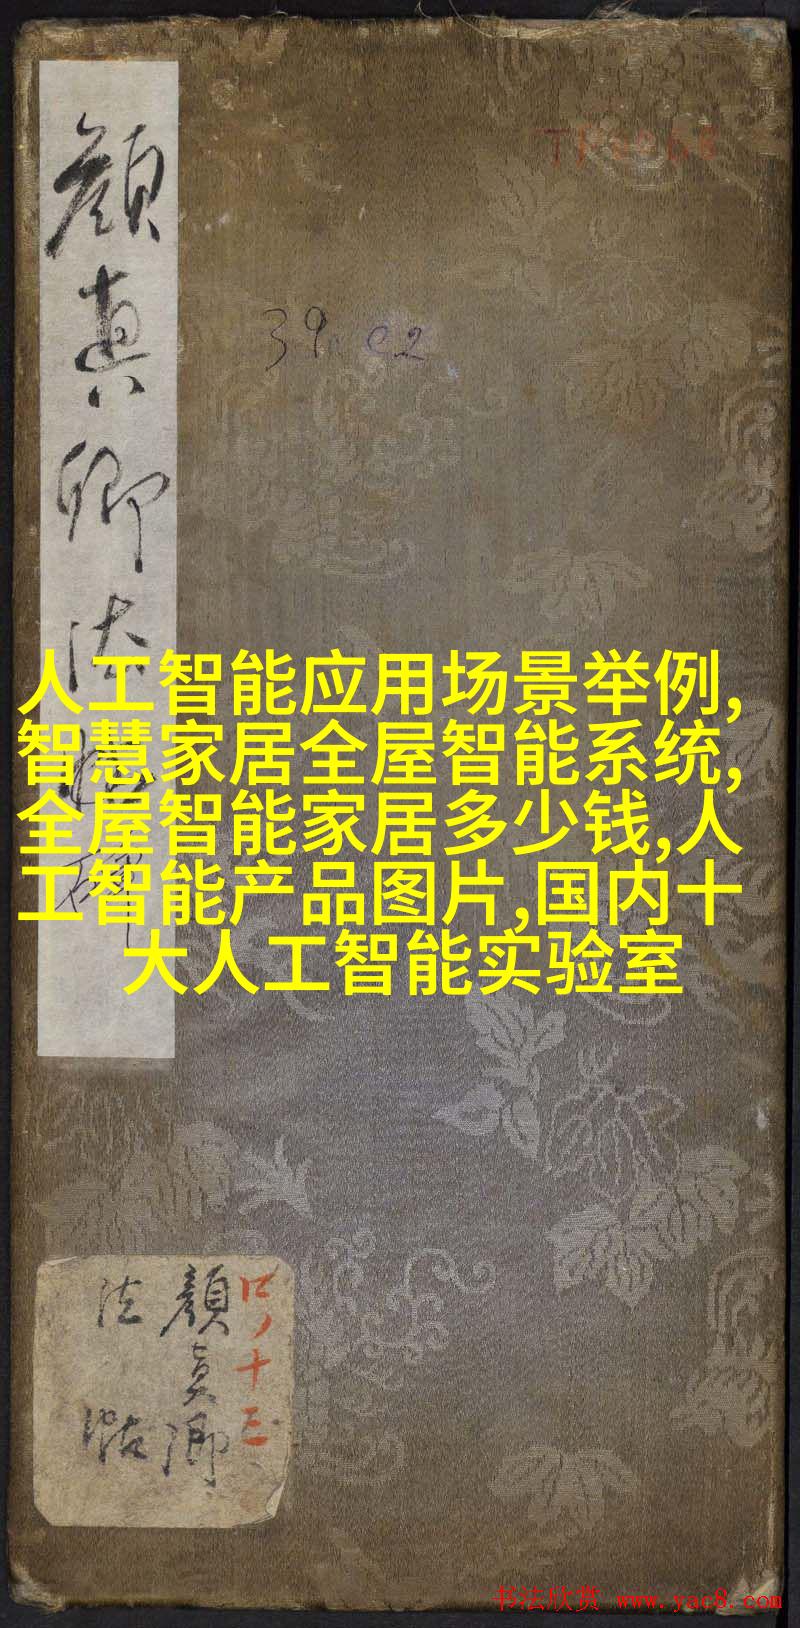 顔真卿法帖
39.e2
人工智能应用场景举例,
智慧家居全屋智能系统,
全屋智能家居多少钱,人
工智能产品图片,国内十
大人工智能实验室
顔真卿
法帖
书法欣赏 www.yac8.com